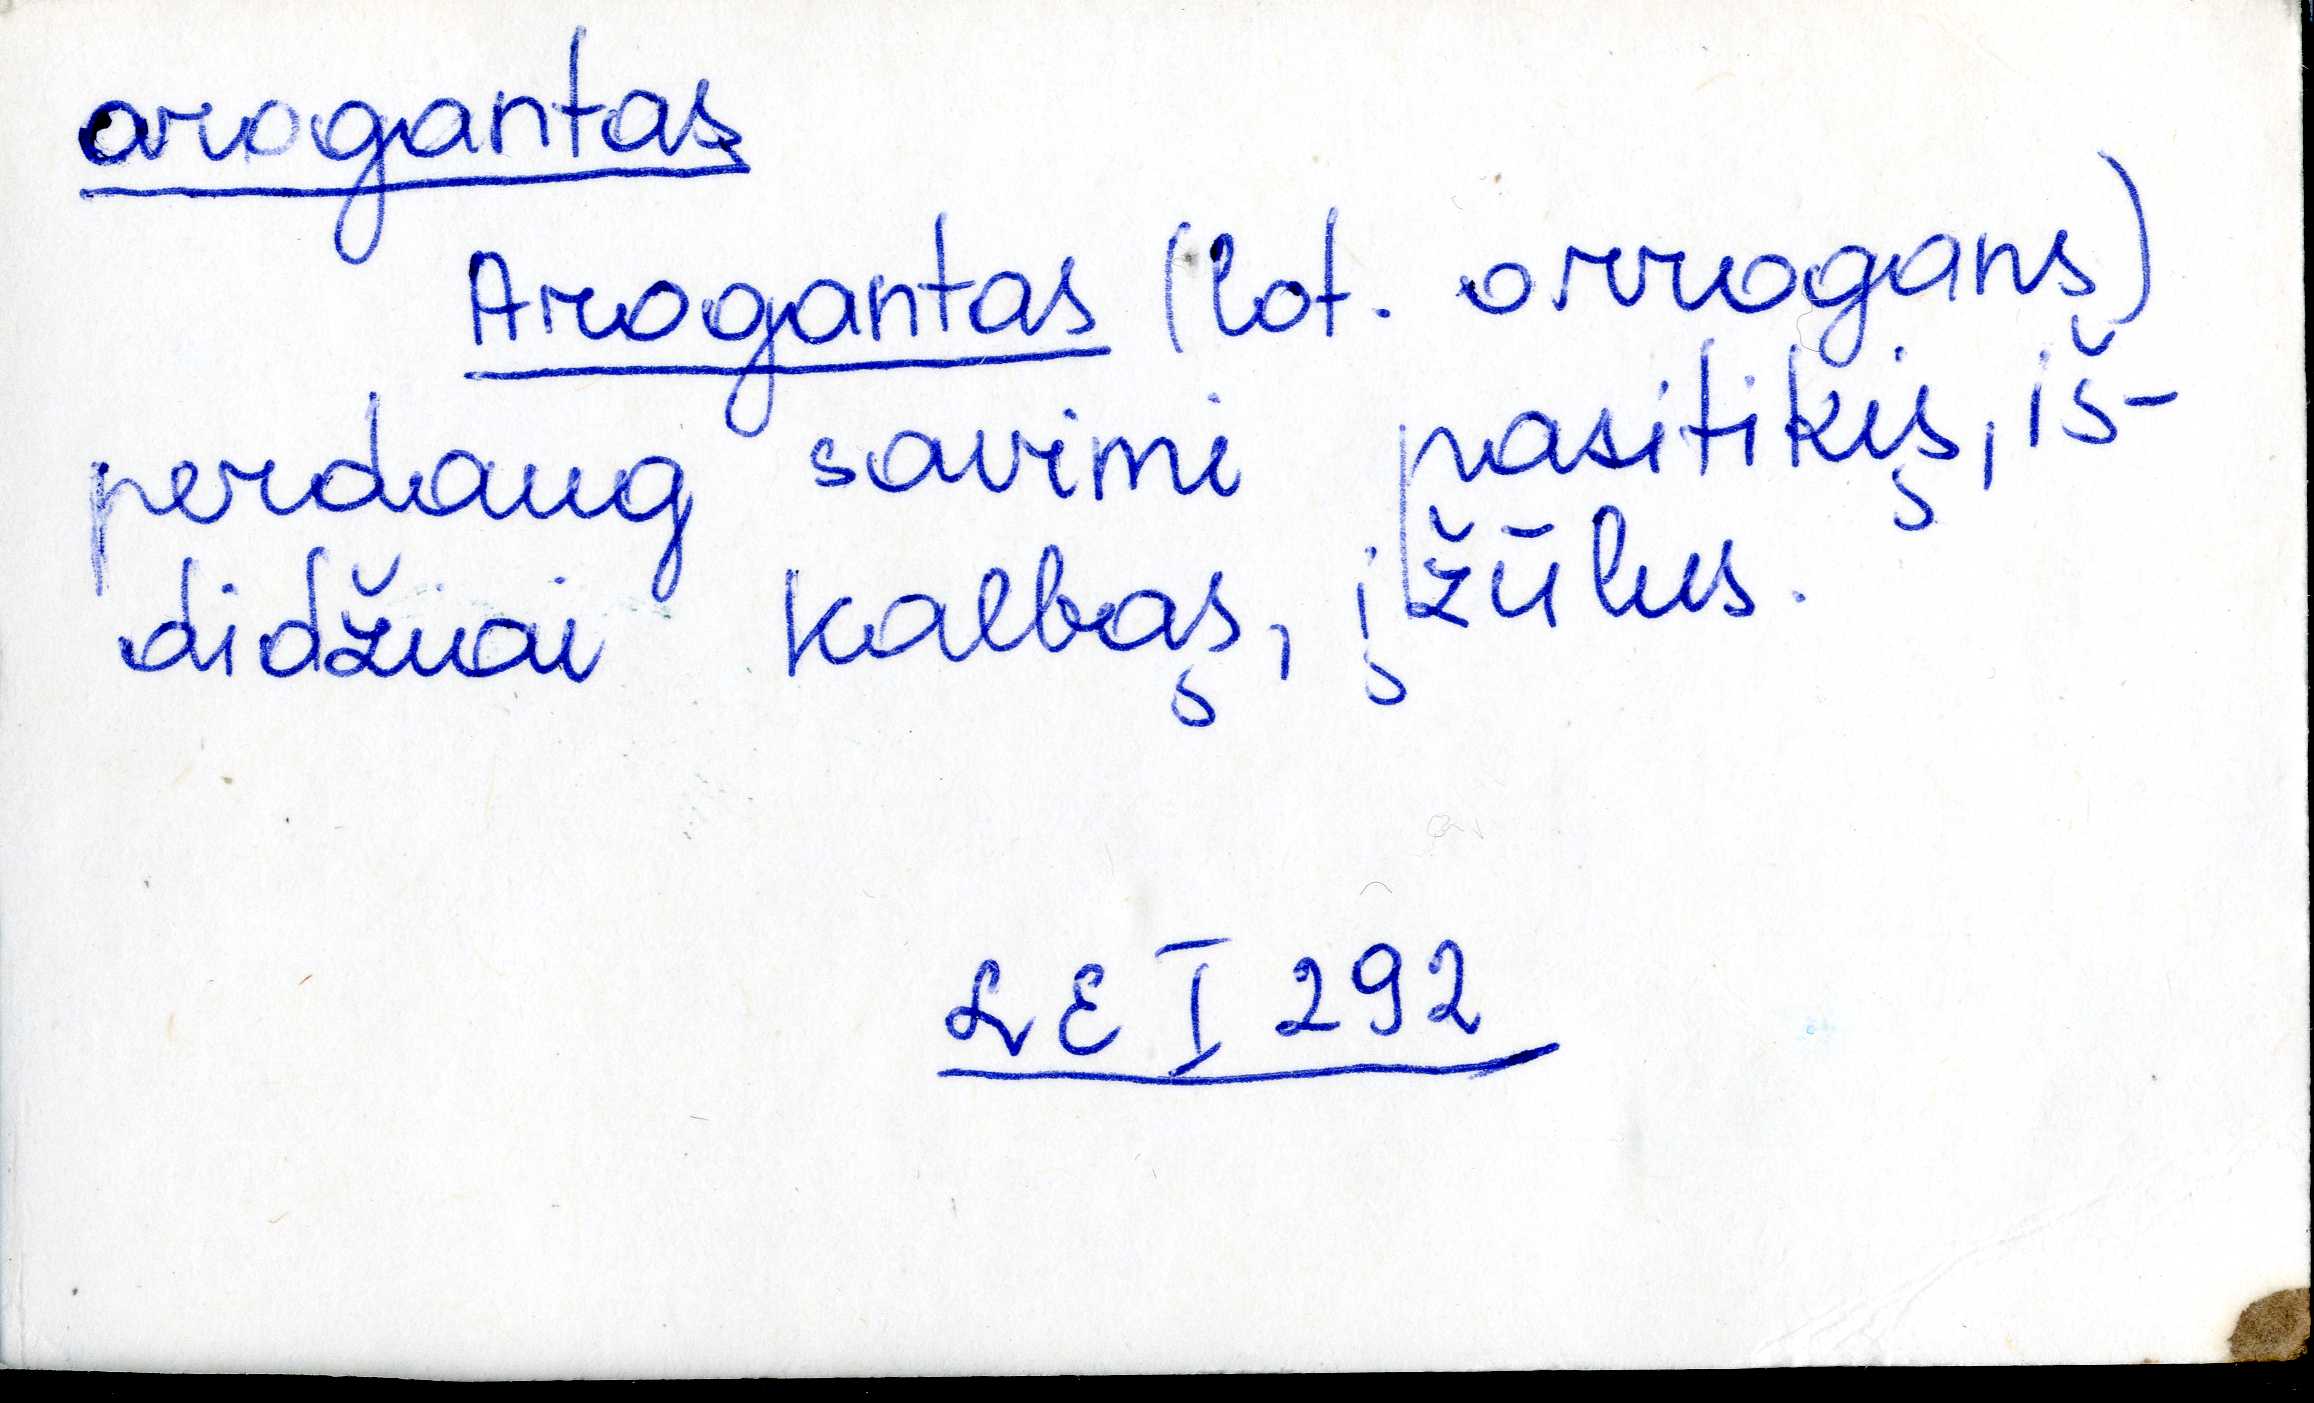 arogantas
Arogantas (lot. arrogans)
perdaug savimi pasitikįs, iš-
didžiai kalbąs, įžūlus.
LE I 292